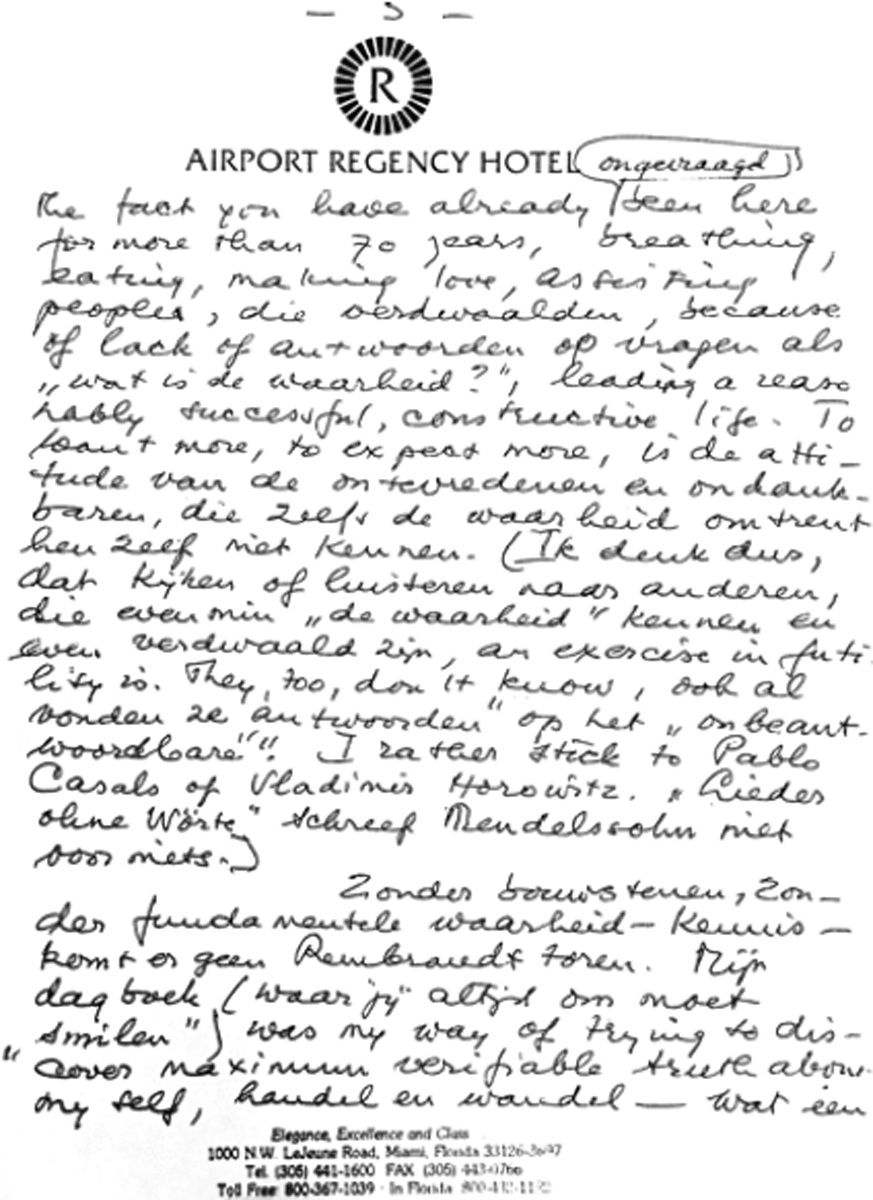 R
AIRPORT REGENCY HOTEL ongevraagd
The fact you have already been here
for more than 70 years, breathing,
eating, making love, assisting
peoples, die verdwaalden, because
of lack of antwoorden op vragen als
„wat is de waarheid?", leading a reaso
nably successful, constructive life. To
want more, to expect more, is de atti-
tude van de ontevredenen en ondank-
baren, die zelfs de waarheid omtrent
hen zelf niet kennen. (Ik denk dus,
dat kijken of luisteren naar anderen,
die evenmin „de waarheid" kennen en
even verdwaald zijn, an exercise in futi
lity is. They, too, don't know, ook al
vonden ze „antwoorden" op het „onbeant-
woordbare"". I rather stick to Pablo
Casals of Vladimir Horowitz. „Lieder
ohne Worte" schreef Mendelssohn niet
voor niets.)
Zonder bouwstenen, zon-
der fundamentele waarheid-kennis-
komt er geen Rembrandt toren. Mijn
dagboek (waar jij altijd om moet
„smilen") was my way of trying to dis-
cover maximum verifiable truth about
my self, handel en wandel — wat een
Elegance, Excellence and Class
1000 N.W. LeJeune Road, Miami, Florida 33126-3697
Tel. (305) 441-1600 FAX (305) 443-0766
Toll Free 800-367-1039 · In Florida